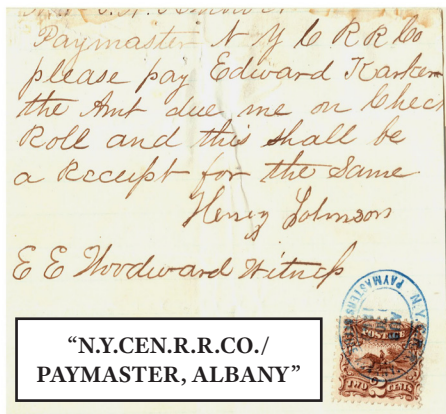 Paymaster N Y C R R Co
please pay Edward
the Amt due me on Chec
Roll and this shall be
a Receipt for the Same
Henry Johnson
E E Woodward Witness
N.Y.C
PAYMASTERS
TWO CENTS
“N.Y.CEN.R.R.CO./
PAYMASTER, ALBANY”